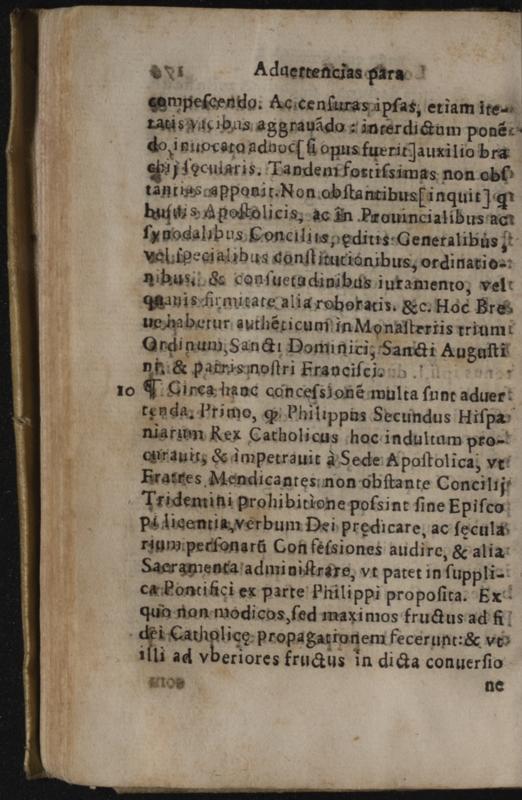 Aduertencias para
compeſcendo. Ac cenſuras ipſas, etiam ite-
ratis vicibus aggrauãdo: interdictum ponẽ
do, inuocato adhoc[ſi opus fuerit]auxilio bra
chij ſęcularis. Tandem fortiſsimas non obſ
tantias apponit. Non obſtantibus[inquit] q
buſuis Apoſtolicis, ac in Prouincialibus ac
ſynodalibus Concilijs, ęditis Generalibus,
vel ſpecialibus conſtitutionibus, ordinatio-
nibus, & conſuetudinibus iuramento, vel
quauis firmitate alia roboratis. &c. Hoc Bre
ue habetur authẽticum in Monaſteriis trium
Ordinum, Sancti Dominici, Sancti Auguſti
ni, & patris noſtri Franciſci.
10 ¶ Circa hanc conceſsionẽ multa ſunt aduer
tenda. Primo, ꝙ Philippus Secundus Hiſpa
niarum Rex Catholicus hoc indultum pro-
curauit, & impetrauit à Sede Apoſtolica, vt
Fratres Mendicantes non obſtante Concilij
Tridentini prohibitione poſsint ſine Epiſco
pi licentia, verbum Dei prędicare, ac ſęcula
rium perſonarũ Confeſsiones audire, & alia
Sacramenta adminiſtrare, vt patet in ſuppli-
ca Pontifici ex parte Philippi propoſita. Ex
quo non modicos, ſed maximos fructus ad fi
dei Catholicę propagationem fecerunt: & vt
illi ad vberiores fructus in dicta conuerſio
ne